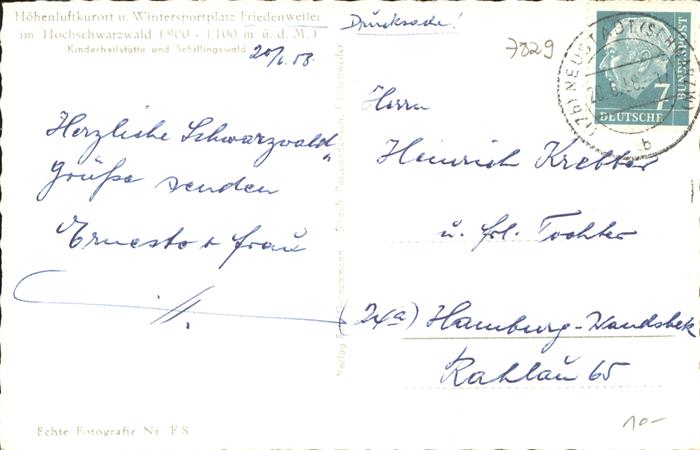 Höhenluftkurort u. Wintersportplatz Friedenweiler
im Hochschwarzwald (900 - 1100 m ü. d. M.)
Kinderheilstätte und Schillingswald
20/6.58.
Herzliche Schwarzwald
Grüße senden
Ernesto + Frau
Echte Fotografie Nr. F 8
Drucksache!
7829
Herrn
Heinrich Kretter
u. frl. Tochter
(24a) Hamburg-Wandsbek
Rahlau 65
10-
(17b) NEUSTADT (SCHWARZW)
20.6.58
b
7
DEUTSCHE
BUNDESPOST